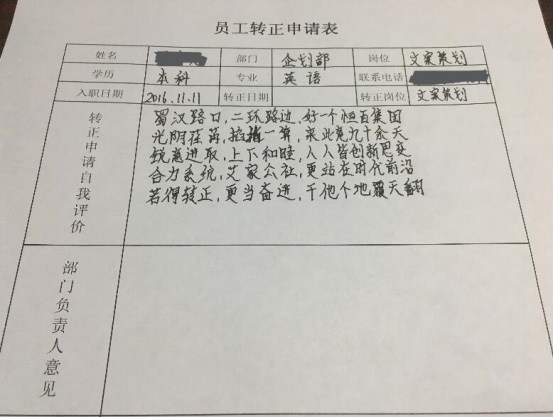 员工转正申请表
姓名 部门 企划部 岗位 文案策划
学历 本科 专业 英语 联系电话
入职日期 2016.11.11 转正日期 转正岗位 文案策划
转正申请自我评价
蜀汉路口,二环路边,好一个恒百集团
光明荏苒,掐指一算,来此竟九十余天
锐意进取,上下和睦,人人皆创新思衰
合力系统,艾家公社,更站在时代前沿
若得转正,更当奋进,干他个地覆天翻
部门负责人意见